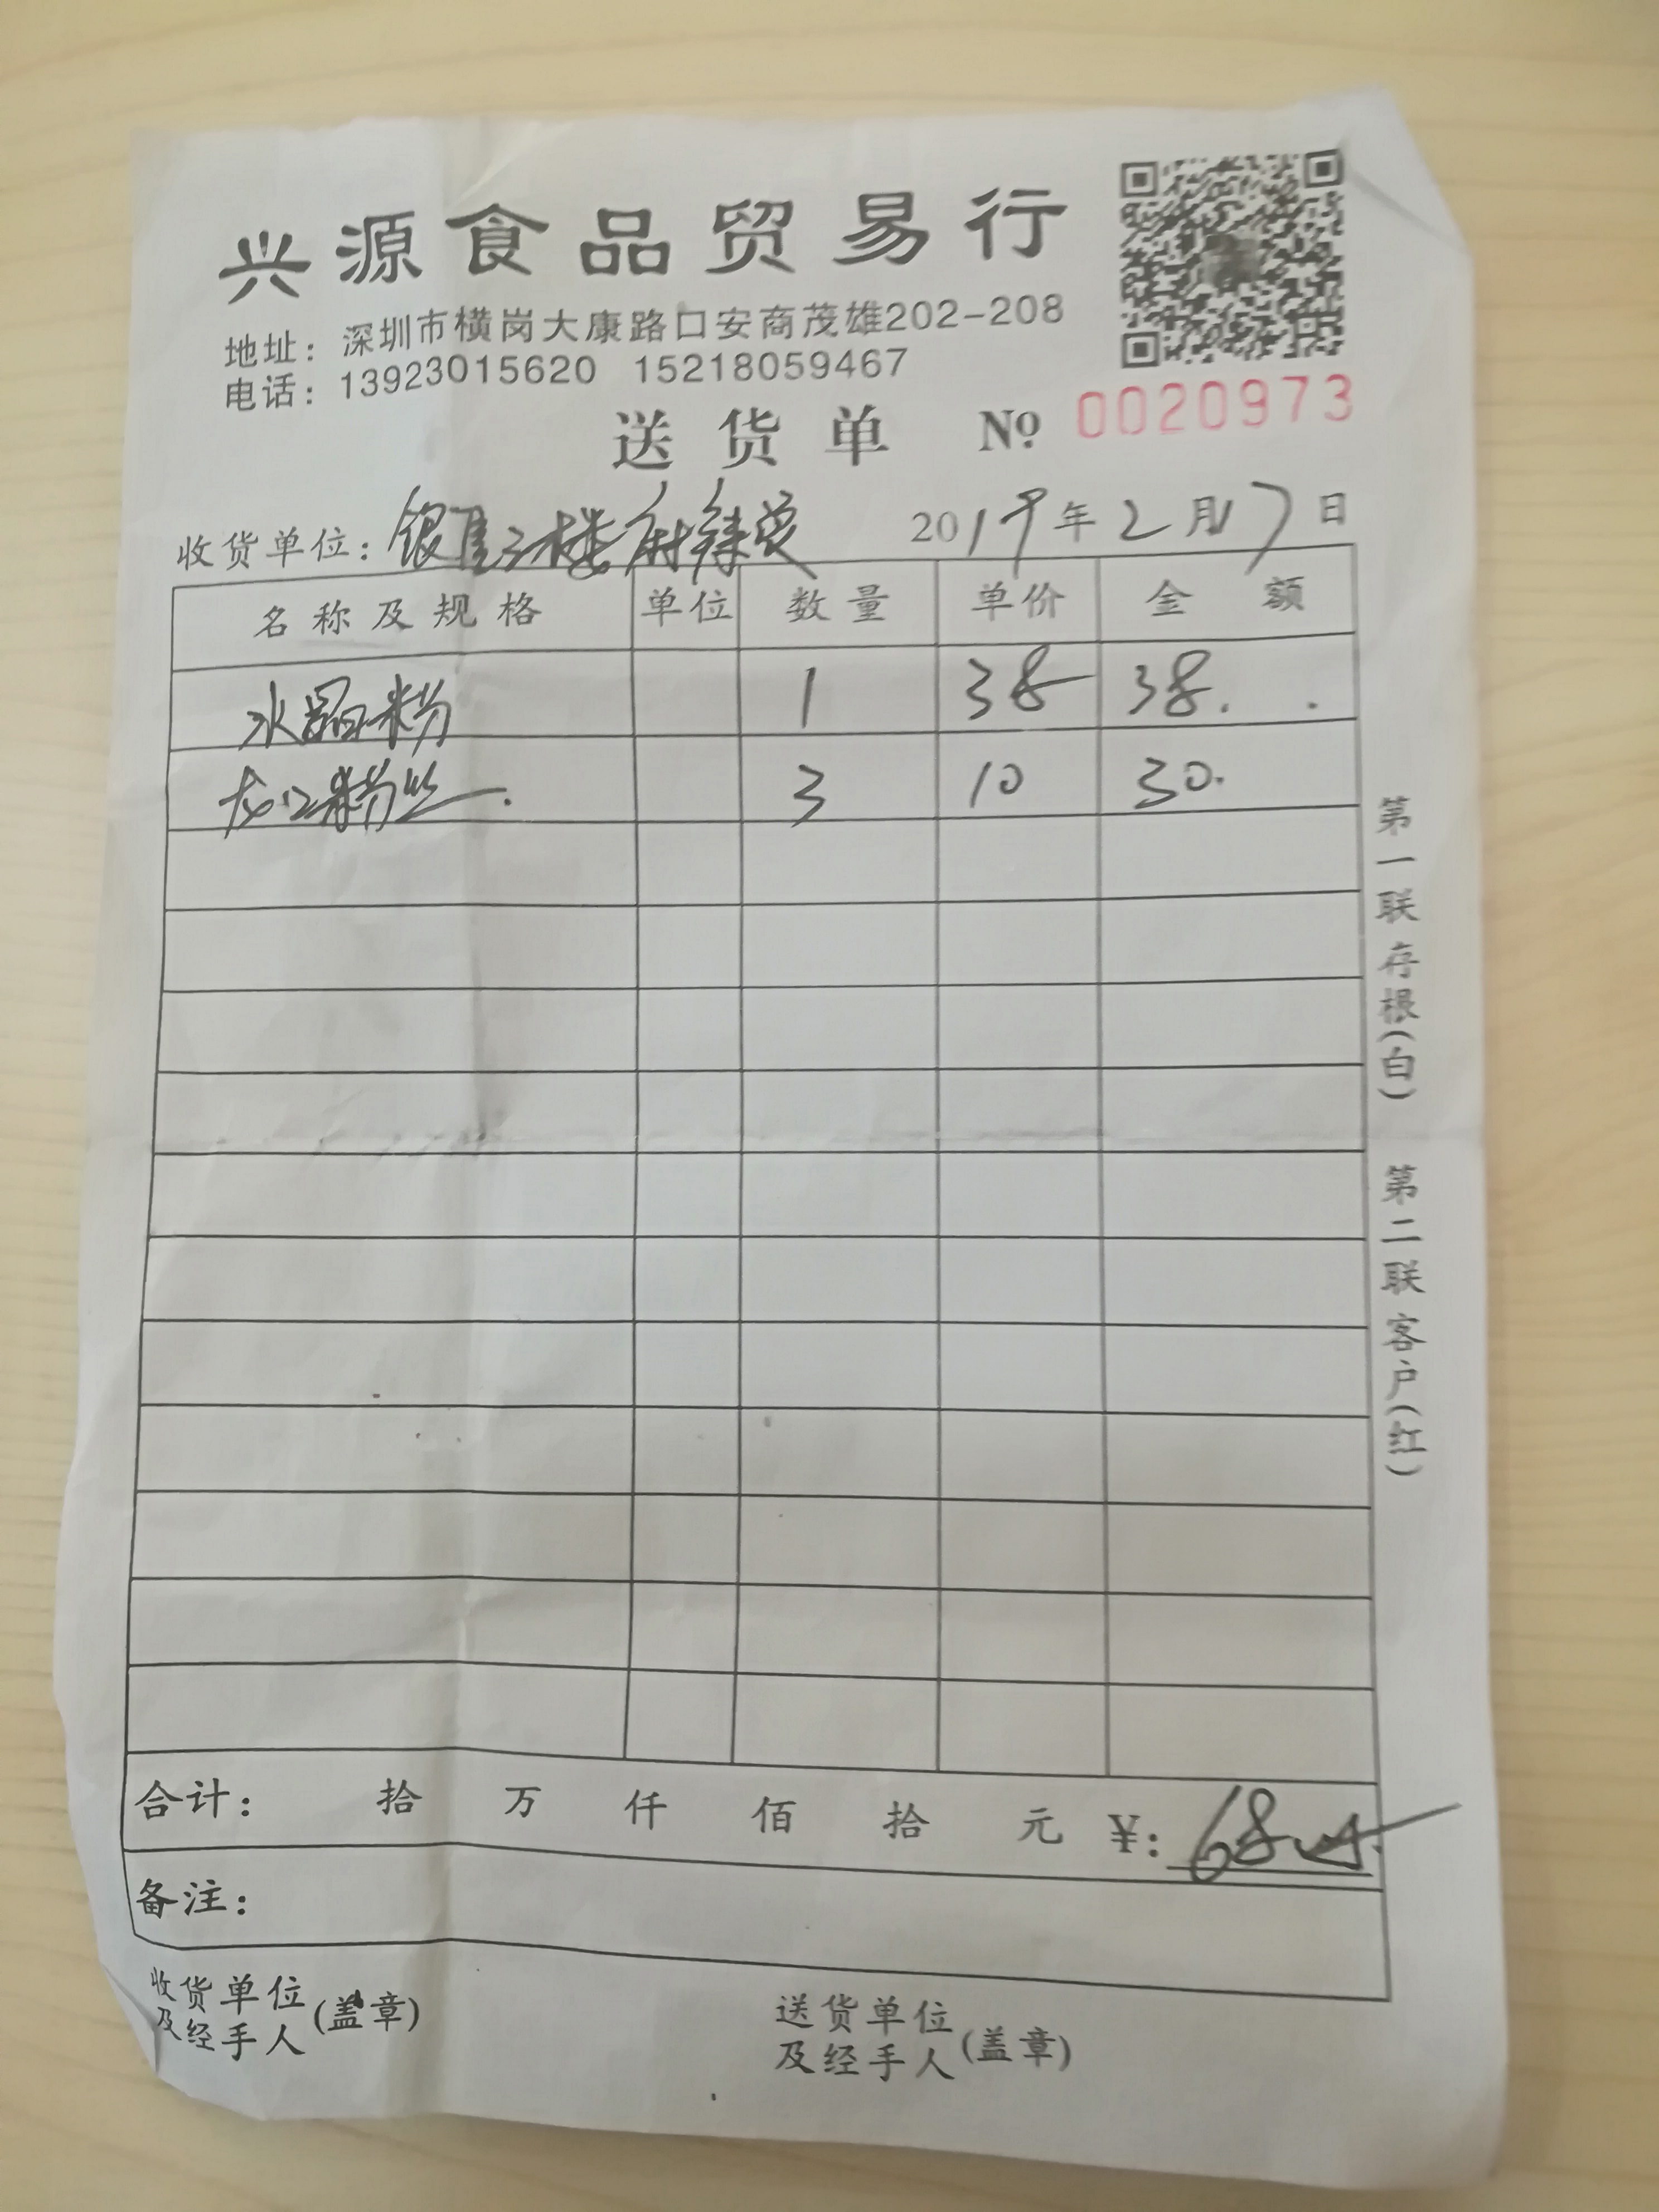 兴源食品贸易行
地址：深圳市横岗大康路口安商茂雄202-208
电话：13923015620 15218059467
送货单 No 0020973
收货单位：银 三楼麻辣 2019年2月17日
名称及规格 单位 数量 单价 金额
水晶粉 1 38 38.
龙口粉丝 3 10 30.
合计： 拾 万 仟 佰 拾 元 ¥：68
备注：
收货单位及经手人(盖章)
送货单位及经手人(盖章)
第一联存根(白) 第二联客户(红)